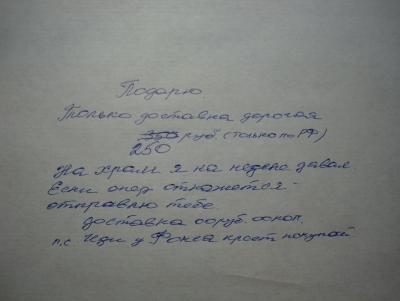 Подарю
Только доставка дорогая
350 руб. (только по РФ)
250
На храм я на неделе давал
Если опод откажется -
отправлю тебе.
доставка 00руб. 00коп.
п.с Иди у Фокса крест покупай